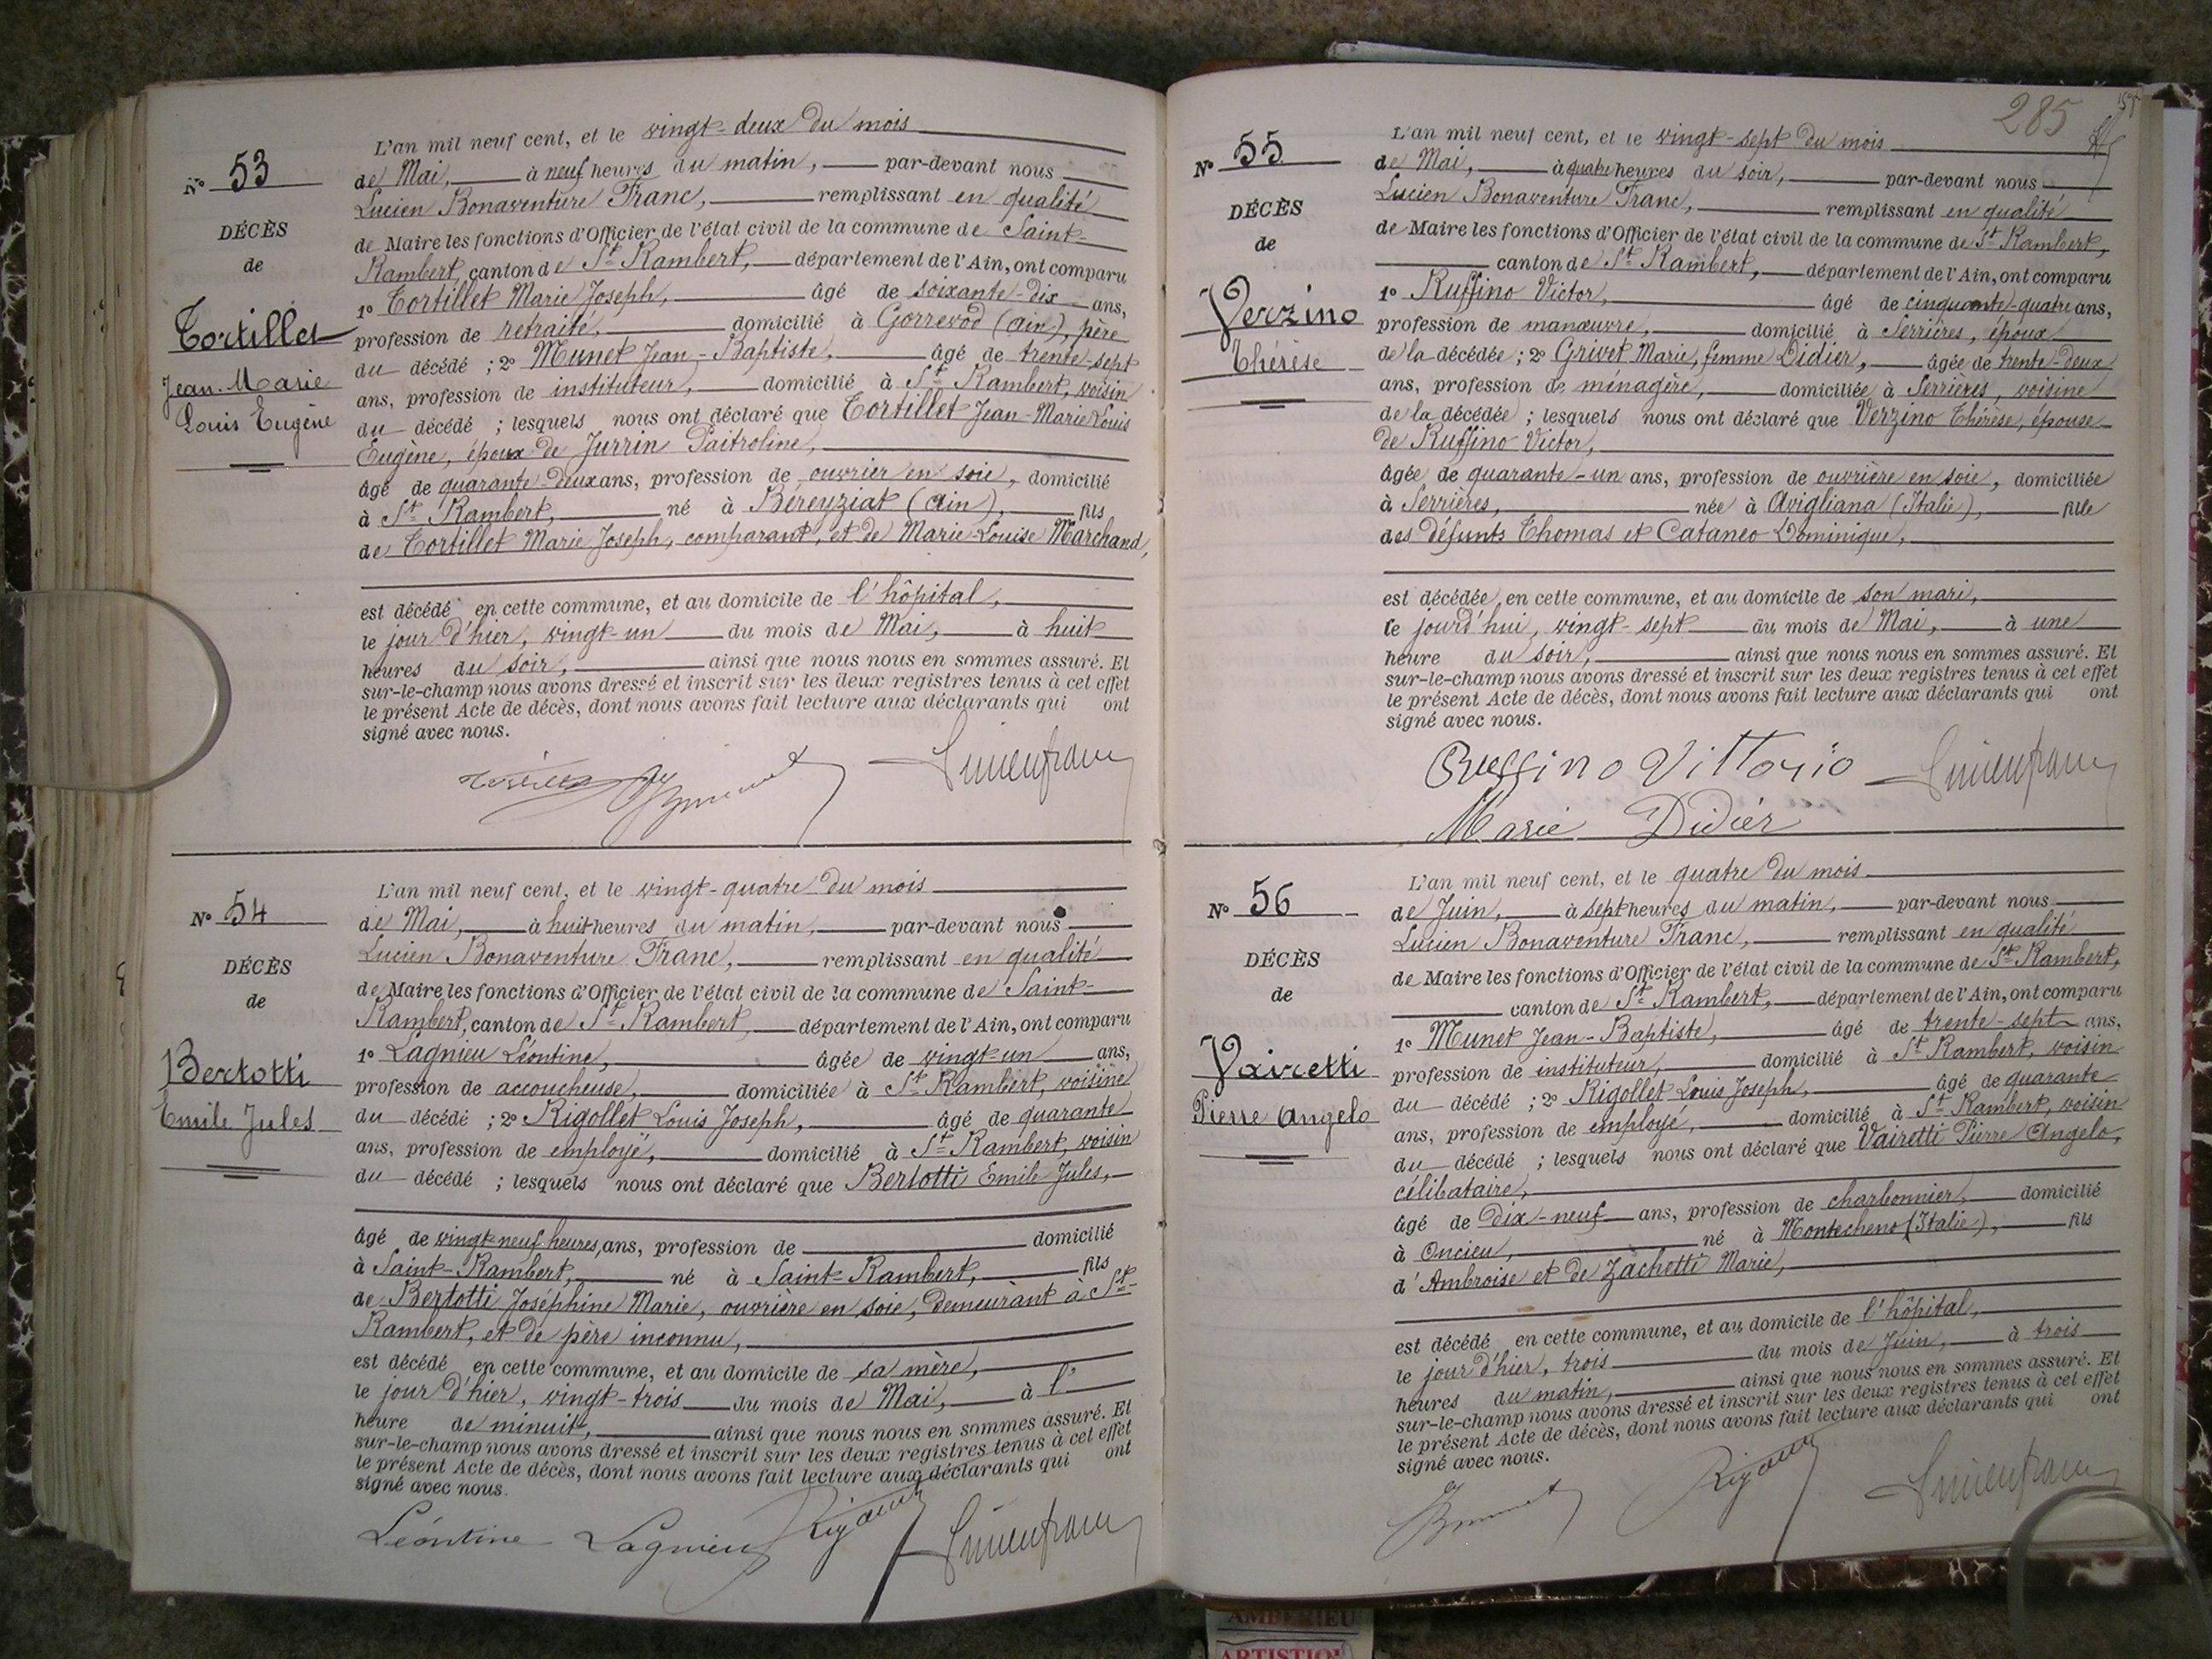 N° 53
DÉCÈS
de
Tortillet
Jean-Marie
Louis Eugène
L'an mil neuf cent, et le vingt-deux du mois
de Mai, à neuf heures du matin, par-devant nous
Lucien Bonaventure Franc, remplissant en qualité
de Maire les fonctions d'Officier de l'état civil de la commune de Saint-
Rambert, canton de St Rambert, département de l'Ain, ont comparu
1° Tortillet Marie Joseph, âgé de soixante-dix ans,
profession de retraité, domicilié à Gorrevod (Ain), père
du décédé ; 2° Munet Jean-Baptiste, âgé de trente-sept
ans, profession de instituteur, domicilié à St Rambert, voisin
du décédé ; lesquels nous ont déclaré que Tortillet Jean-Marie Louis
Eugène, époux de Jurrin
âgé de quarante-deux ans, profession de ouvrier en soie, domicilié
à St Rambert, né à Béreyziat (Ain), fils
de Tortillet Marie Joseph, comparant, et de Marie-Louise Marchand,
est décédé en cette commune, et au domicile de l'hôpital,
le jour d'hier, vingt-un du mois de Mai, à huit
heures du soir, ainsi que nous nous en sommes assuré. Et
sur-le-champ nous avons dressé et inscrit sur les deux registres tenus à cet effet
le présent Acte de décès, dont nous avons fait lecture aux déclarants qui ont
signé avec nous.
N° 54
DÉCÈS
de
Bertotti
Emile Jules
L'an mil neuf cent, et le vingt-quatre du mois
de Mai, à huit heures du matin, par-devant nous
Lucien Bonaventure Franc, remplissant en qualité
de Maire les fonctions d'Officier de l'état civil de la commune de Saint-
Rambert, canton de St Rambert, département de l'Ain, ont comparu
1° Lagnieu Léontine, âgée de vingt-un ans,
profession de accoucheuse, domiciliée à St Rambert, voisine
du décédé ; 2° Rigollet Louis Joseph, âgé de quarante
ans, profession de employé, domicilié à St Rambert, voisin
du décédé ; lesquels nous ont déclaré que Bertotti Emile Jules,
âgé de vingt-neuf heures, ans, profession de domicilié
à Saint-Rambert, né à Saint-Rambert, fils
de Bertotti Joséphine Marie, ouvrière en soie, demeurant à St-
Rambert, et de père inconnu,
est décédé en cette commune, et au domicile de sa mère,
le jour d'hier, vingt-trois du mois de Mai, à l'
heure de minuit, ainsi que nous nous en sommes assuré. Et
sur-le-champ nous avons dressé et inscrit sur les deux registres tenus à cet effet
le présent Acte de décès, dont nous avons fait lecture aux déclarants qui ont
signé avec nous.
Léontine Lagnieu
285
N° 55
DÉCÈS
de
Verzino
Thérèse
L'an mil neuf cent, et le vingt-sept du mois
de Mai, à quatre heures du soir, par-devant nous
Lucien Bonaventure Franc, remplissant en qualité
de Maire les fonctions d'Officier de l'état civil de la commune de St Rambert,
canton de St Rambert, département de l'Ain, ont comparu
1° Ruffino Victor, âgé de cinquante-quatre ans,
profession de manœuvre, domicilié à Serrières, époux
de la décédée ; 2° Grivet Marie, femme Didier, âgée de trente-deux
ans, profession de ménagère, domiciliée à Serrières, voisine
de la décédée ; lesquels nous ont déclaré que Verzino Thérèse, épouse
de Ruffino Victor,
âgée de quarante-un ans, profession de ouvrière en soie, domiciliée
à Serrières, née à Avigliana (Italie), fille
des défunts Thomas et Cataneo Dominique,
est décédée en cette commune, et au domicile de son mari,
le jourd'hui, vingt-sept du mois de Mai, à une
heure du soir, ainsi que nous nous en sommes assuré. Et
sur-le-champ nous avons dressé et inscrit sur les deux registres tenus à cet effet
le présent Acte de décès, dont nous avons fait lecture aux déclarants qui ont
signé avec nous.
Ruffino Vittorio
Marie Didier
N° 56
DÉCÈS
de
Vairetti
Pierre Angelo
L'an mil neuf cent, et le quatre du mois
de Juin, à sept heures du matin, par-devant nous
Lucien Bonaventure Franc, remplissant en qualité
de Maire les fonctions d'Officier de l'état civil de la commune de St Rambert,
canton de St Rambert, département de l'Ain, ont comparu
1° Munet Jean-Baptiste, âgé de trente-sept ans,
profession de instituteur, domicilié à St Rambert, voisin
du décédé ; 2° Rigollet Louis Joseph, âgé de quarante
ans, profession de employé, domicilié à St Rambert, voisin
du décédé ; lesquels nous ont déclaré que Vairetti Pierre Angelo,
célibataire,
âgé de dix-neuf ans, profession de charbonnier, domicilié
à Oncieu, né à Montecheno (Italie), fils
d'Ambroise et de Zachetti Marie,
est décédé en cette commune, et au domicile de l'hôpital,
le jour d'hier, trois du mois de Juin, à trois
heures du matin, ainsi que nous nous en sommes assuré. Et
sur-le-champ nous avons dressé et inscrit sur les deux registres tenus à cet effet
le présent Acte de décès, dont nous avons fait lecture aux déclarants qui ont
signé avec nous.
AMBERIEU